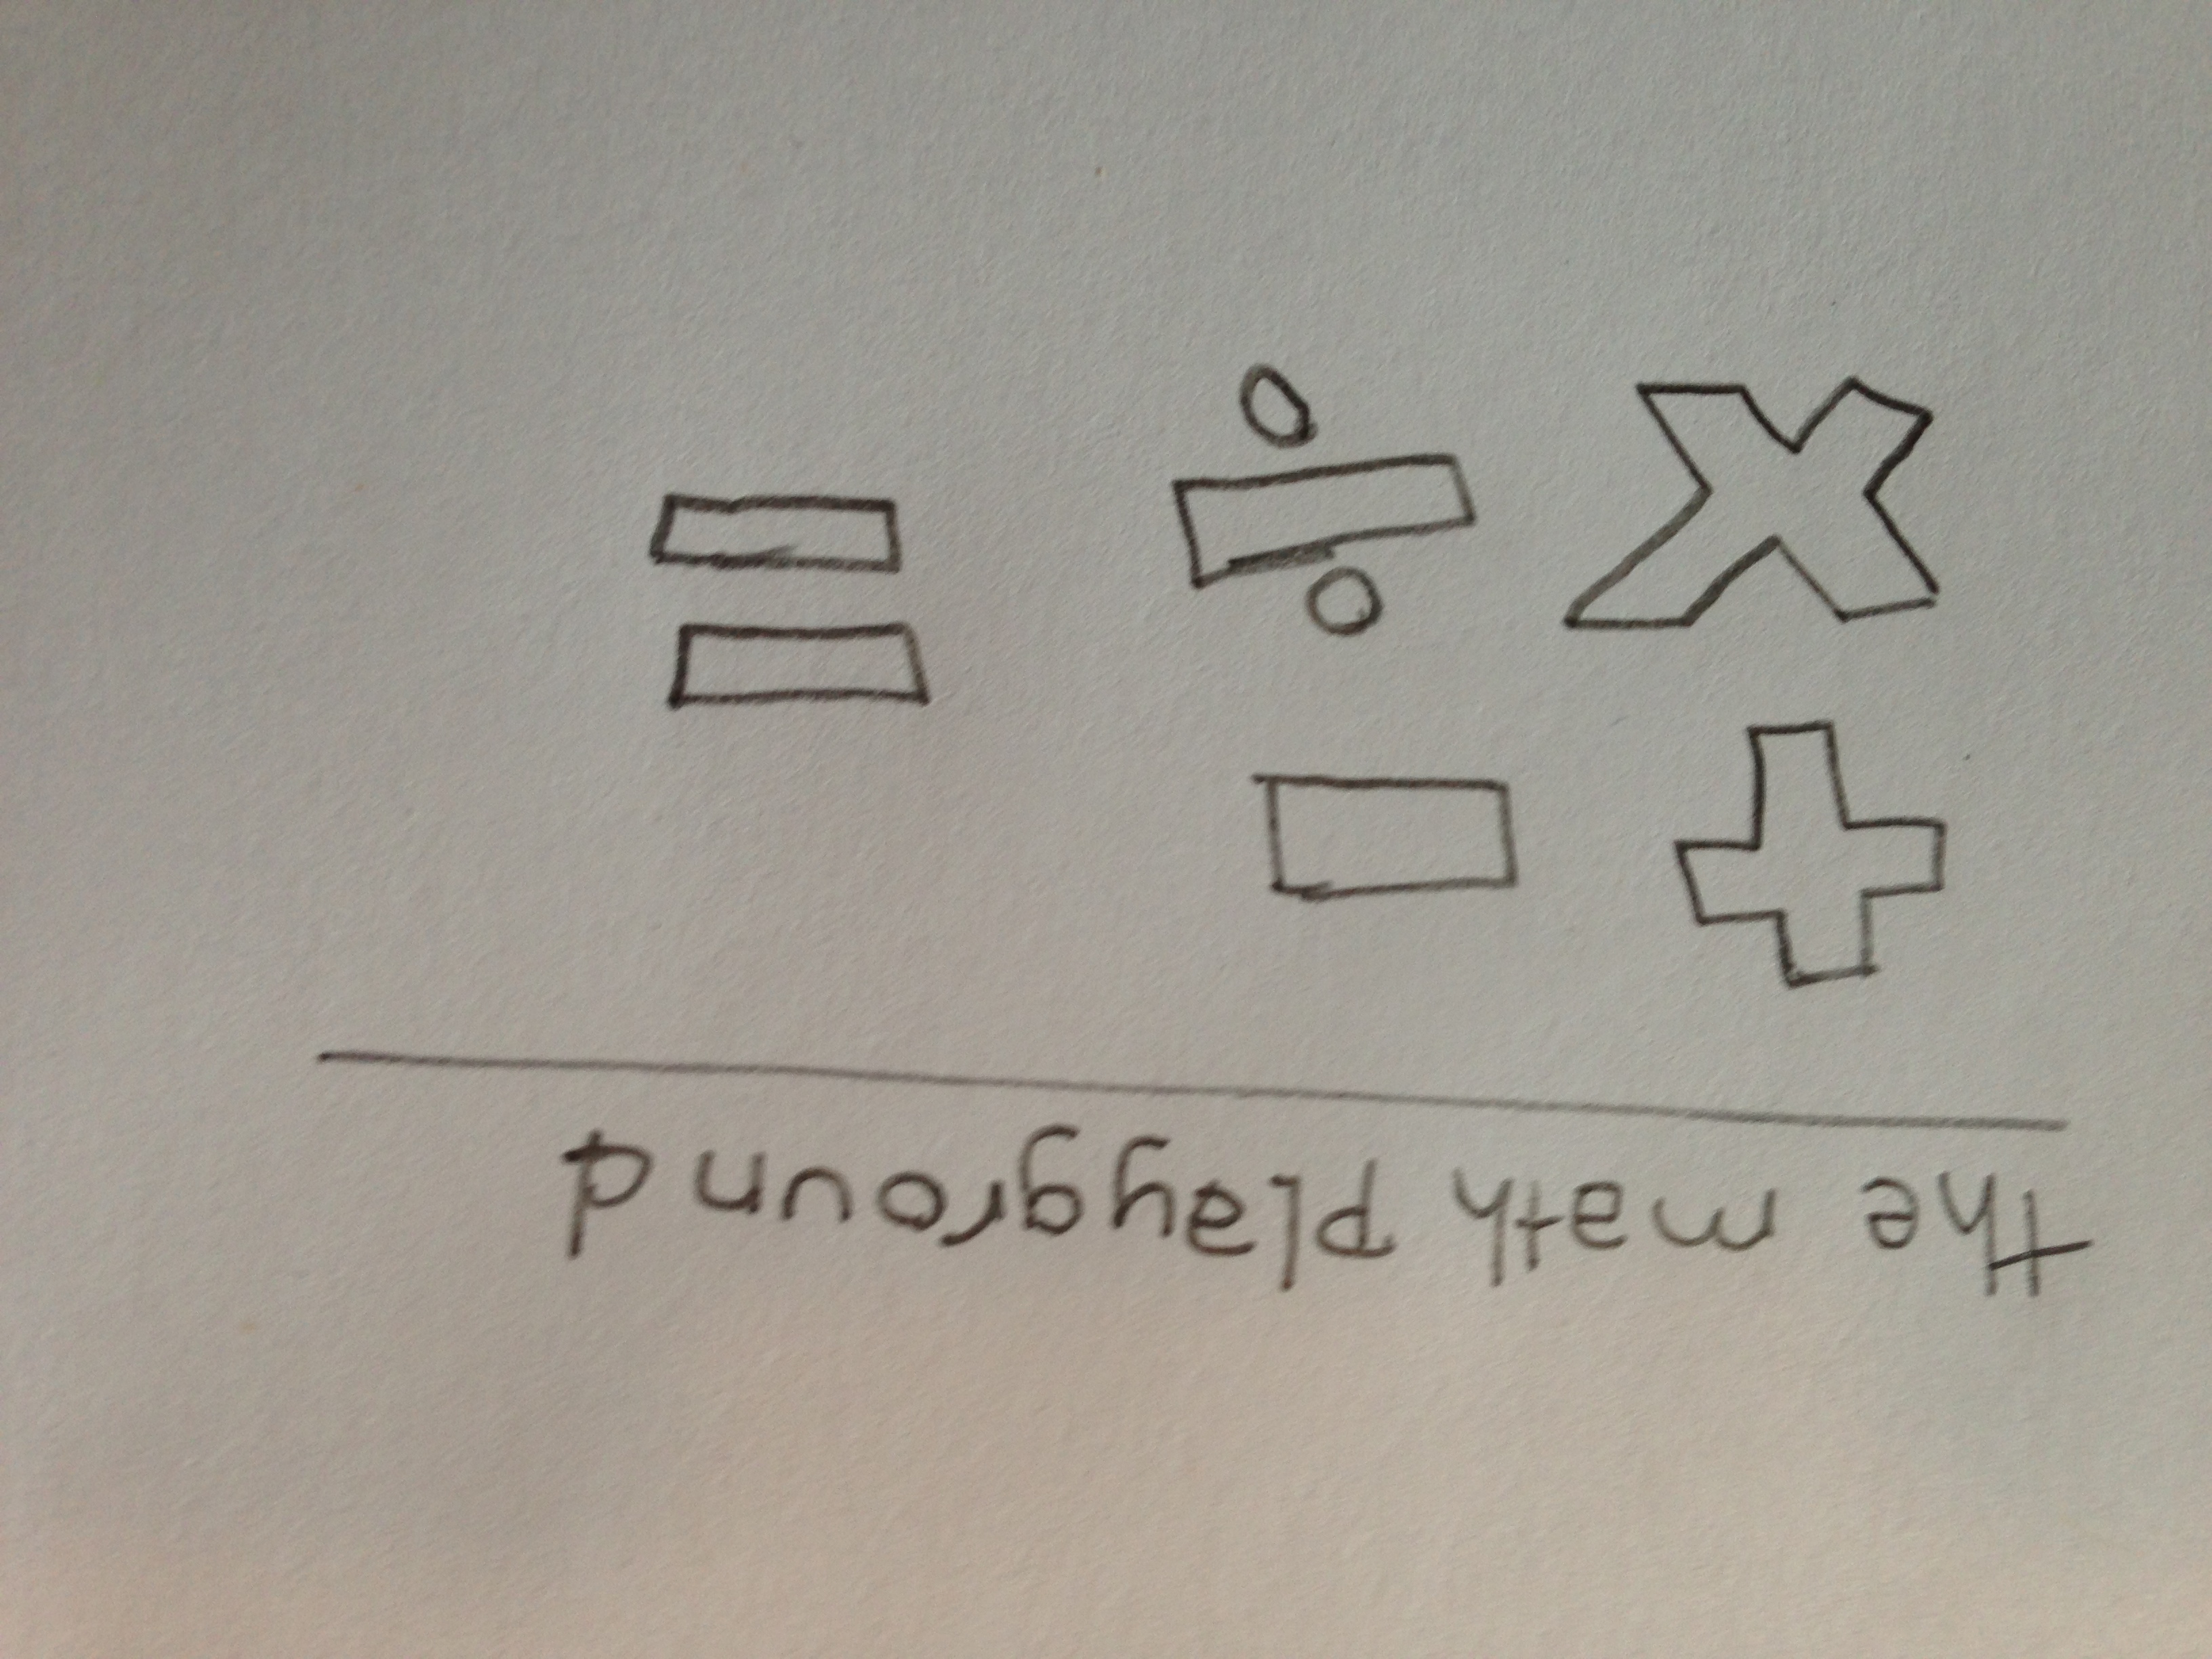 the math playground
+ -
× ÷ =